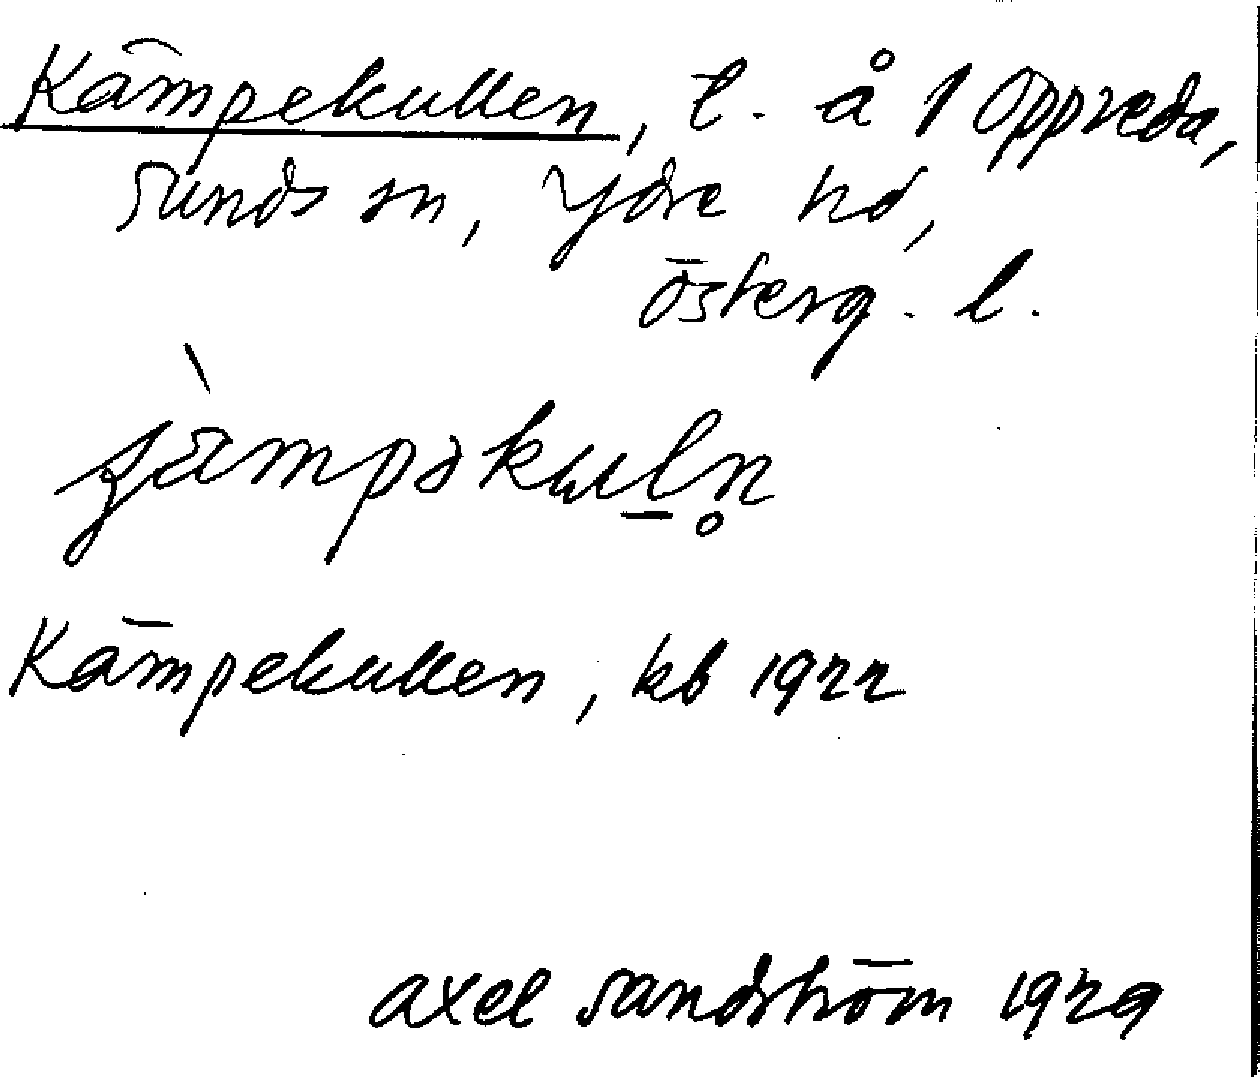 Kämpekullen, t. å 1 Oppreda,
Sunds sn, Ydre hd,
Österg. l.
Kämpekullen, kb 1922
Axel Sandström 1929